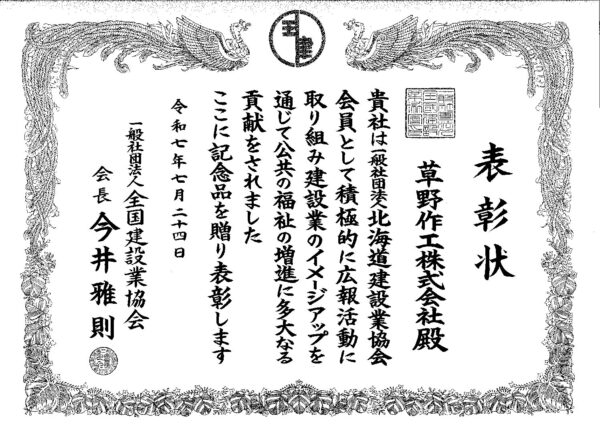 全建
表彰状
草野作工株式会社殿
貴社は一般社団法人北海道建設業協会
会員として積極的に広報活動に
取り組み建設業のイメージアップを
通じて公共の福祉の増進に多大なる
貢献をされました
ここに記念品を贈り表彰します
令和七年七月二十四日
一般社団法人全国建設業協会
会長 今井雅則